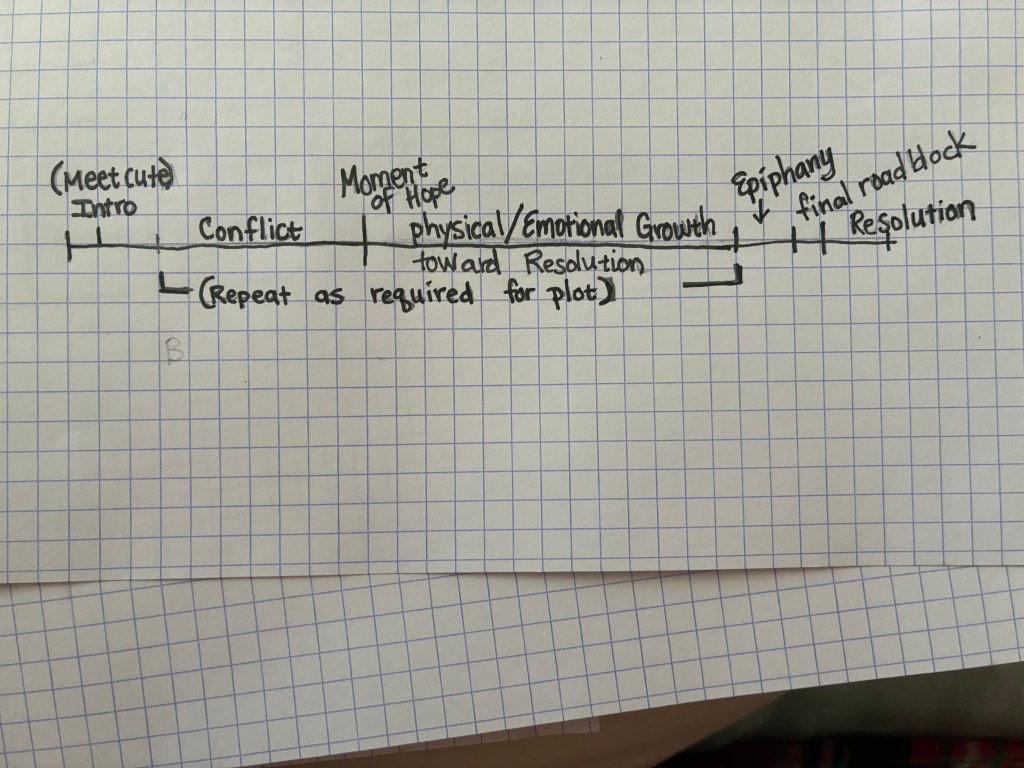 (Meet cute)
Intro
Conflict
Moment
of Hope
physical/Emotional Growth
toward Resolution
(Repeat as required for plot)
Epiphany
final roadblock
Resolution
B